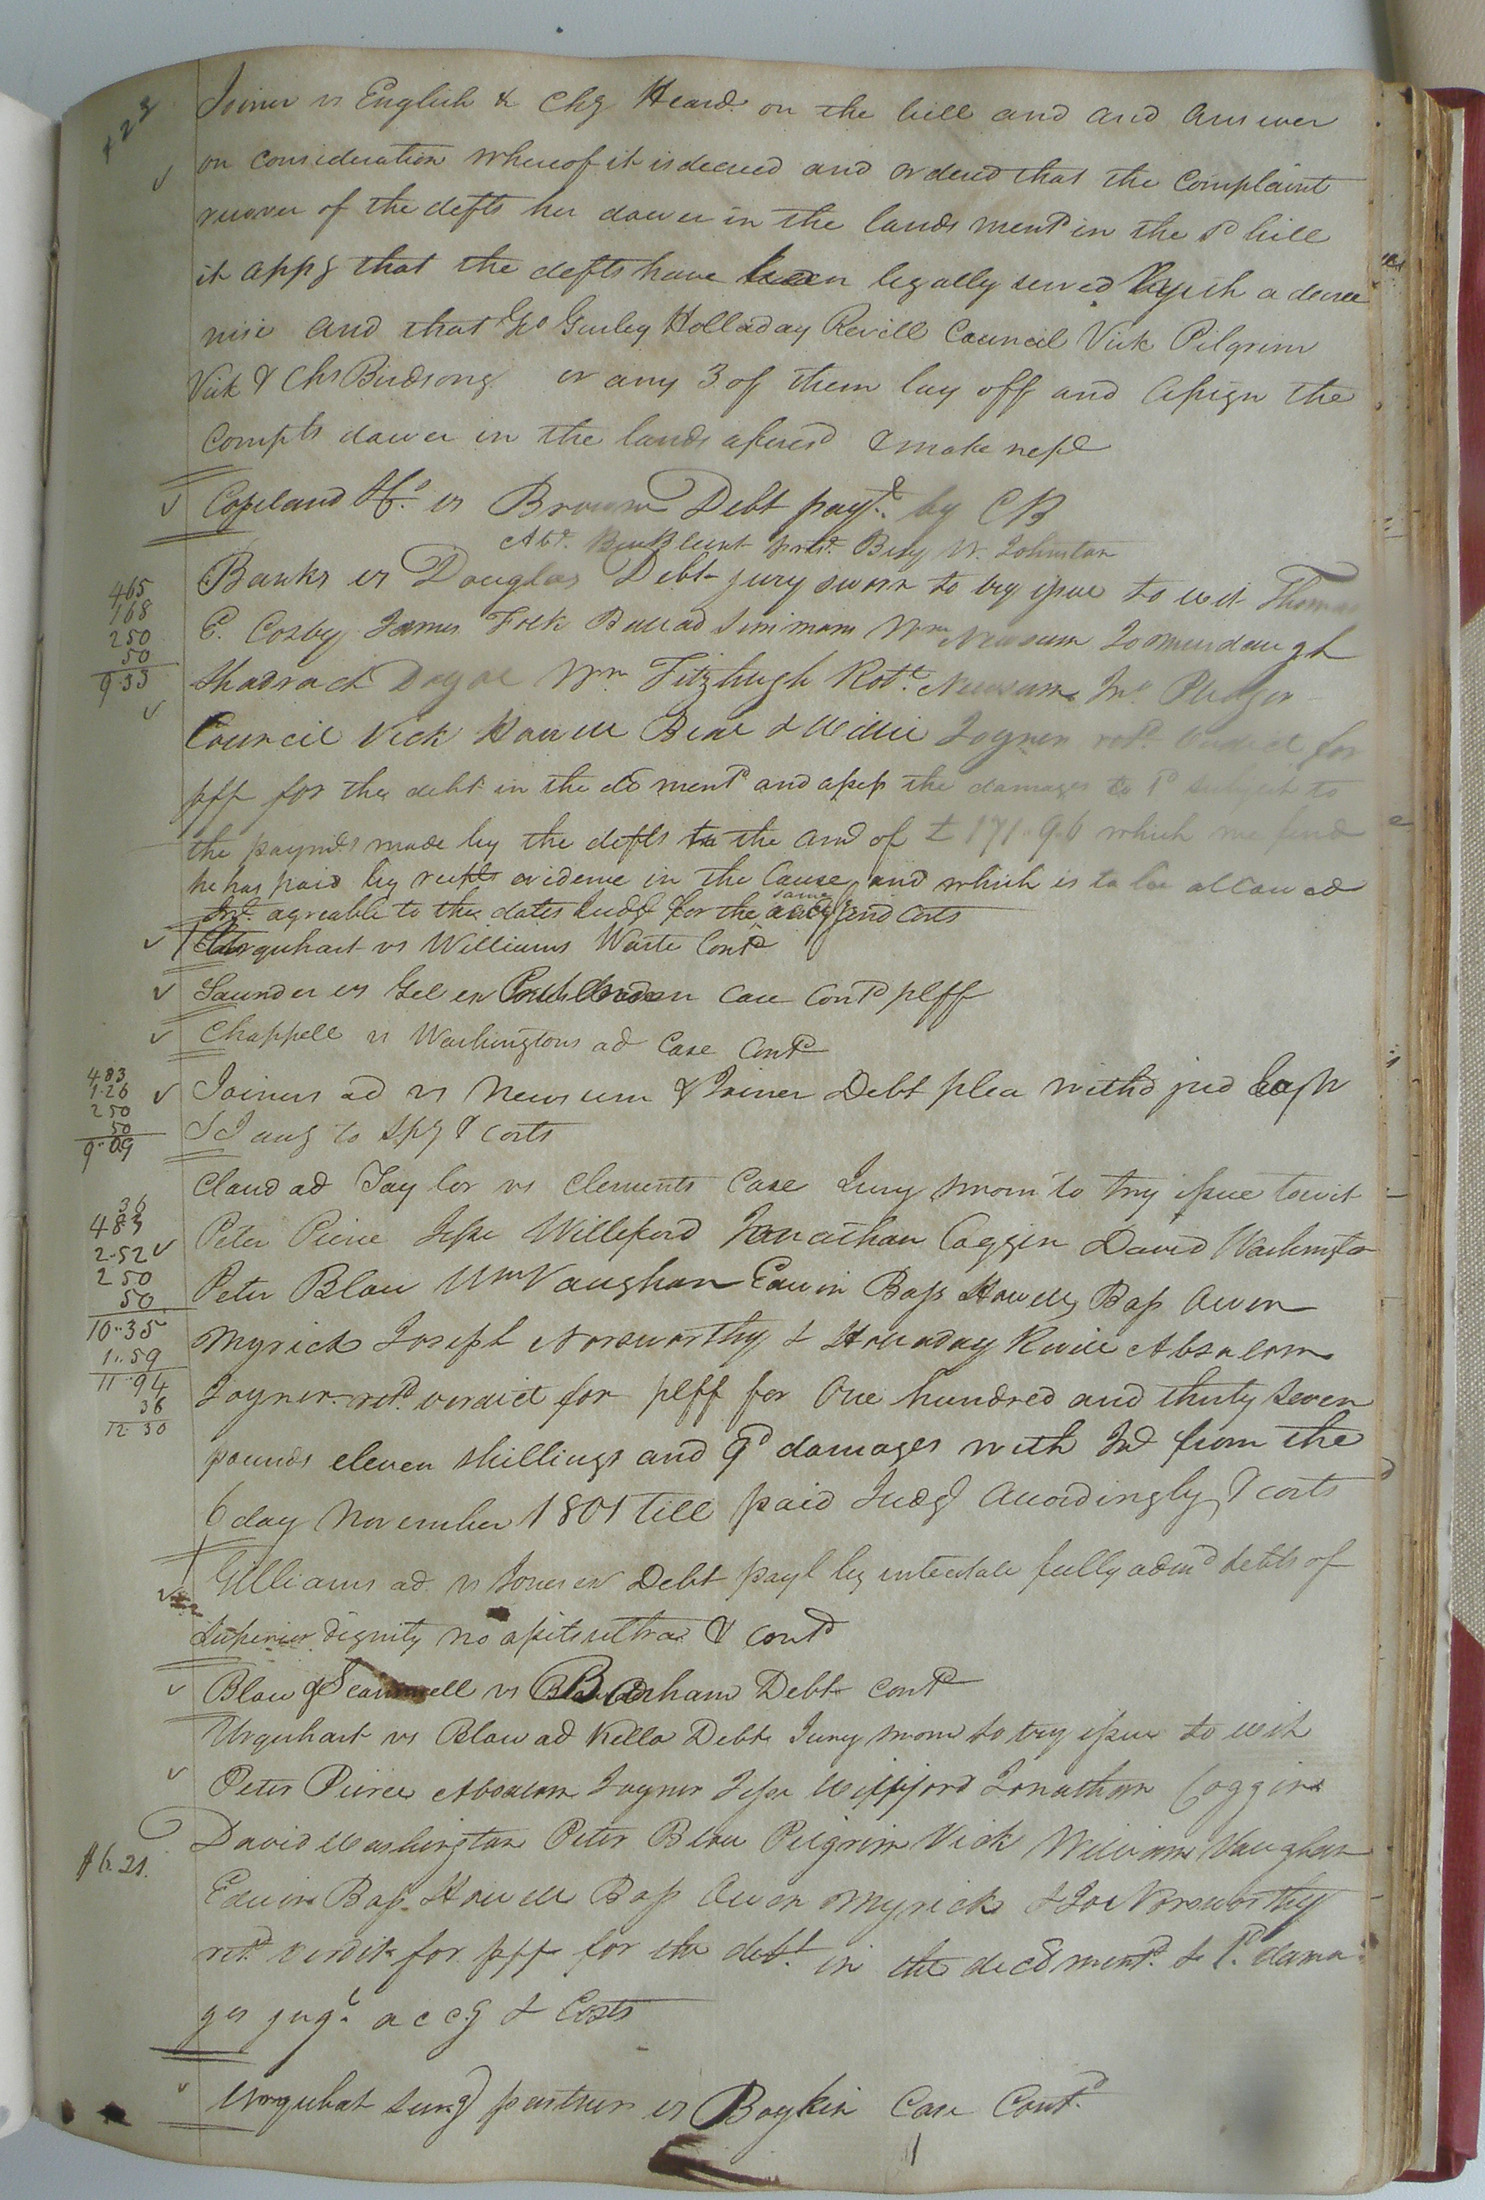 423
Joiner vs English & Chy Heard on the bill and and answer
on consideration whereof it is decreed and ordered that the Complaint
recover of the defts her dower in the lands ment'd in the sd bill
it appg that the defts have been legally served with a decree
nisi and that Gurley Holladay Revill Council Vick Pilgrim
Vick & Chs Birdsong or any 3 of them lay off and assign the
Compts dower in the lands aforesd & make rept
Copeland & Co vs Brown Debt payt by CB
Abt. Blunt Benj W. Johnston
Banks vs Douglas Debt jury sworn to try issue to wit Thomas
E. Cosby James Folk Simmons Wm Newsum
Shadrach Wm Fitzhugh Robt Newsum Jno
Council Vick Howell Beal & Willie Joyner retd verdict for
plff for the debt in the dec ment'd and assess the damages to 1d subject to
the paymts made by the defts to the amt of £171.9.6 which we find
he has paid by recpts evidence in the Cause and which is to be allowed
Int. agreable to the dates Judgt for the same and costs
Urquhart vs Williams Waste Contd
Saunders vs Case Contd plff
Chappell vs Washingtons ad Case Contd
Joiners ad vs Newsum & Joiner Debt plea withd jud
SJ aug to spg & costs
Claud ad Taylor vs Clements Case Jury sworn to try issue towit
Peter Pierce Jesse Williford Jonathan Coggin David Washington
Peter Blow Wm Vaughan Edwin Bass Howell Bass Owen
Myrick Joseph Norsworthy & Holladay Revill Absalom
Joyner retd verdict for plff for One hundred and thirty seven
pounds eleven shillings and 9d damages with Int from the
6 day November 1801 till paid Judgt Accordingly & costs
Gilliams ad vs Jones ex Debt payt by intestate fully admd debts of
superior dignity no assets ultra & contd
Blow & Scammell vs Barham Debt contd
Urquhart vs Blow ad Kello Debt Jury sworn to try issue to wit
Peter Pierce Absalom Joyner Jesse Williford Jonathan Coggin
David Washington Peter Blow Pilgrim Vick William Vaughan
Edwin Bass Howell Bass Owen Myrick & Jos Norsworthy
retd verdit for plff for the debt in the decd ment'd & 1d dama
ges jugt accg & Costs
Urquhat surg partner vs Boykin Case Contd
465
168
250
50
9.33
483
1.26
250
50
9.09
36
483
2.52
250
50
10.35
1.59
11.94
36
12.30
$6.21